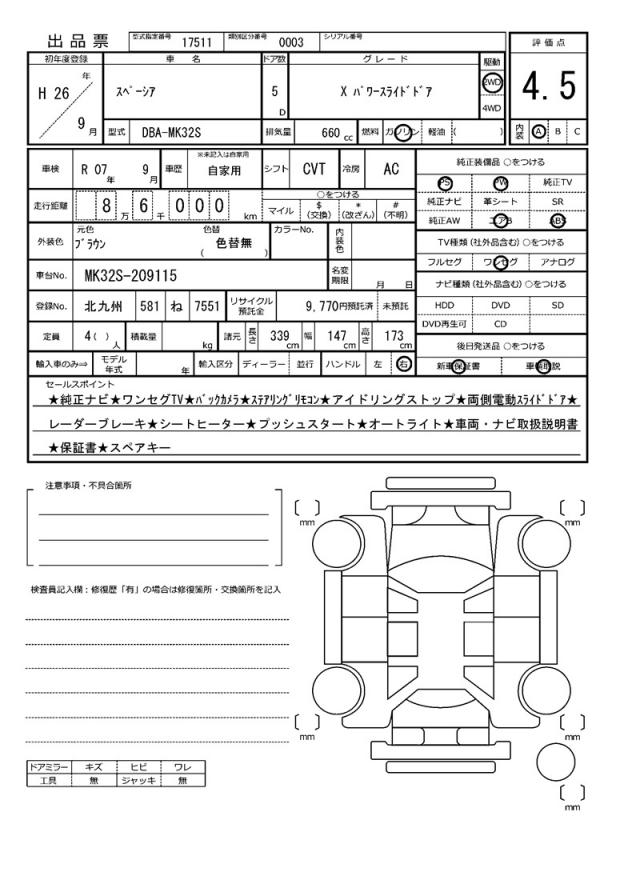 出品票 型式指定番号 17511 類別区分番号 0003 シリアル番号
初年度登録 車名 ドア数 グレード 駆動 評価点
H 26 年 9 月 スペーシア 5 D X パワースライドドア 2WD 4WD 4.5
型式 DBA-MK32S 排気量 660 cc 燃料 ガソリン 軽油 ( ) 内装 A B C
車検 R 07 年 9 月 車歴 ※未記入は自家用 自家用 シフト CVT 冷房 AC
走行距離 8 万 6 千 0 0 0 km ○をつける マイル $ (交換) * (改ざん) # (不明)
外装色 元色 ブラウン 色替 ( 色替無 ) カラーNo. 内装色
車台No. MK32S-209115 名変期限 月 日
登録No. 北九州 581 ね 7551 リサイクル預託金 9,770円預託済 未預託
定員 4( ) 人 積載量 kg 諸元 長さ 339 cm 幅 147 cm 高さ 173 cm
輸入車のみ⇒ モデル年式 年 輸入区分 ディーラー 並行 ハンドル 左 右
純正装備品 ○をつける
PS PW 純正TV
純正ナビ 革シート SR
純正AW エアB ABS
TV種類 (社外品含む) ○をつける
フルセグ ワンセグ アナログ
ナビ種類 (社外品含む) ○をつける
HDD DVD SD
DVD再生可 CD
後日発送品 ○をつける
新車保証書 車輌取説
セールスポイント
★純正ナビ★ワンセグTV★バックカメラ★ステアリングリモコン★アイドリングストップ★両側電動スライドドア★
レーダーブレーキ★シートヒーター★プッシュスタート★オートライト★車両・ナビ取扱説明書
★保証書★スペアキー
注意事項・不具合箇所
検査員記入欄：修復歴「有」の場合は修復箇所・交換箇所を記入
ドアミラー キズ ヒビ ワレ
工具 無 ジャッキ 無
mm
mm
mm
mm
mm